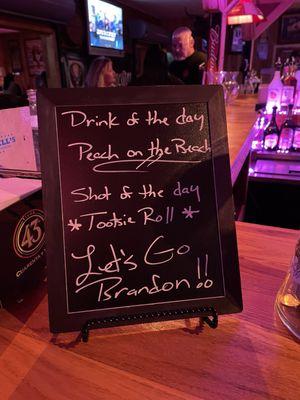 Drink of the day
Peach on the Beach
Shot of the day
*Tootsie Roll*
Let's Go
Brandon!!
43